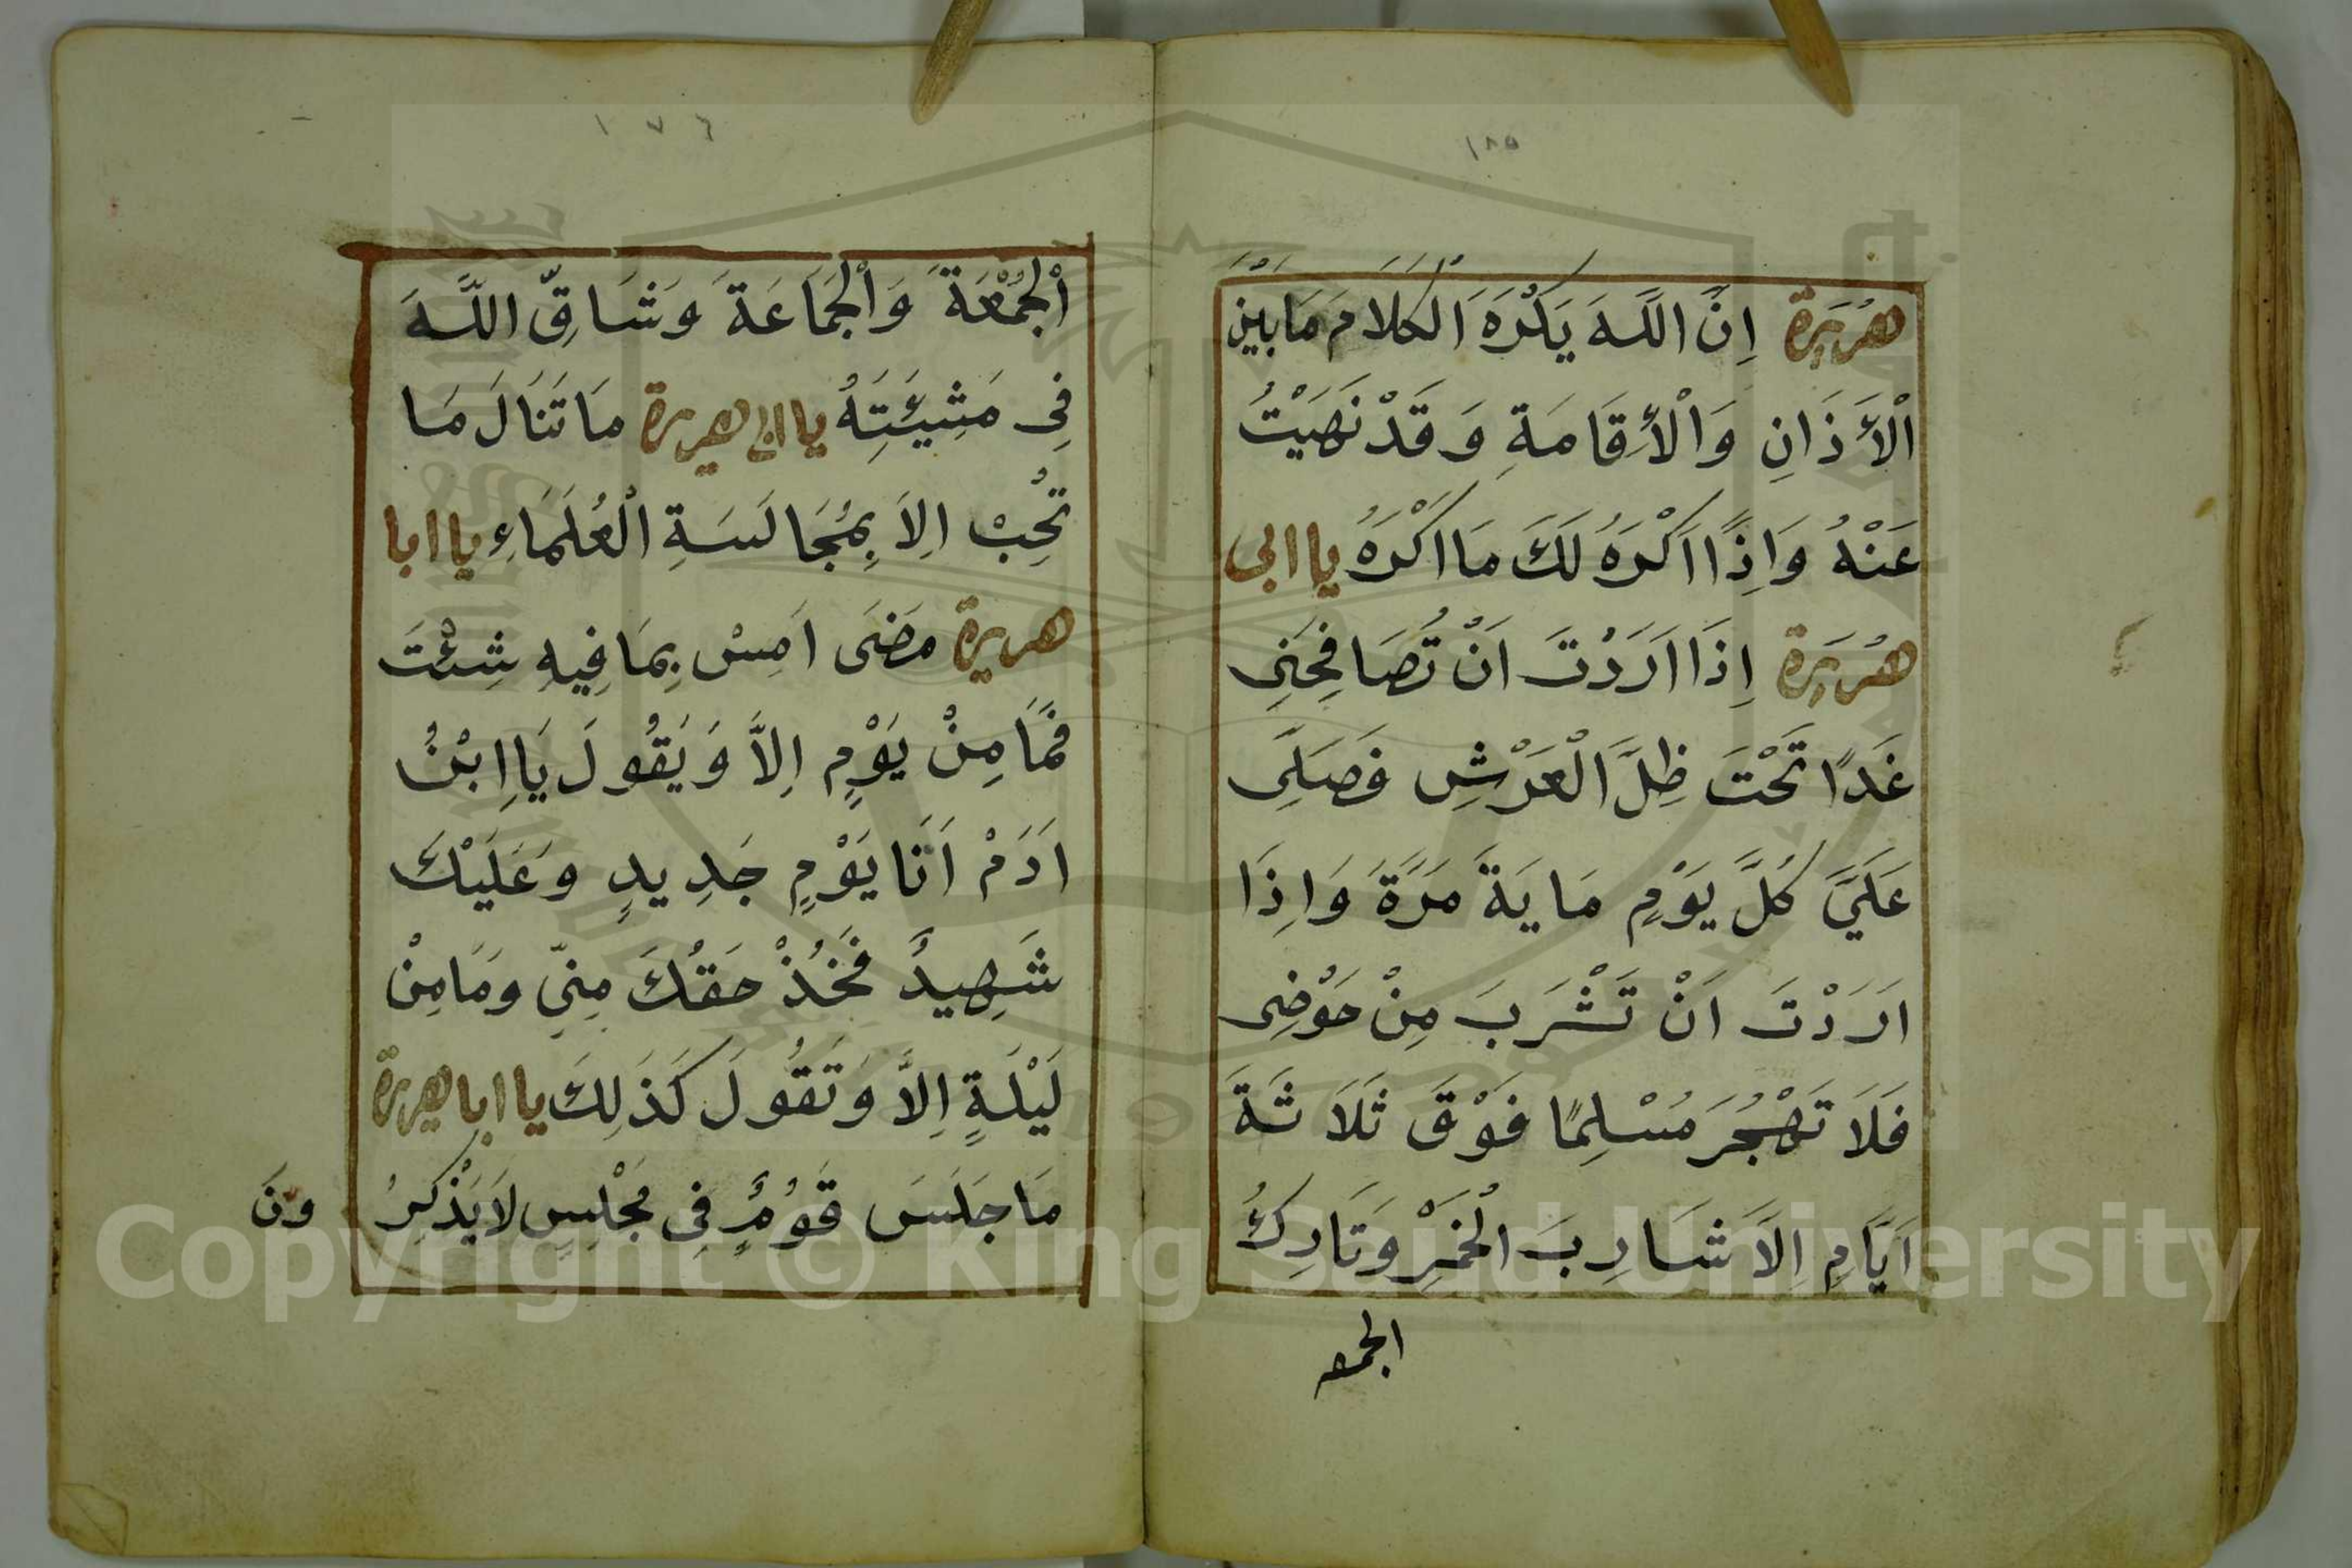 ١٨٥
هُرَيْرَة اِنَّ اللَّهَ يَكْرَهَ الْكَلَامَ مَا بَيْنَ
الْأَذَانِ وَالْأِقَامَةِ وَقَدْ نَهَيْتُ
عَنْهُ وَاِذًا اَكْرَهُ لَكَ مَا اَكْرَهُ يا ابى
هُرَيْرَة اِذَا اَرَدْتَ اَنْ تُصَافِحَنِى
غَدًا تَحْتَ ظِلَّ الْعَرْشِ فَصَلِّى
عَلَيَّ كُلَّ يَوْمٍ مَايَةَ مَرَّةَ وَاِذَا
اَرَدْتَ اَنْ تَشْرَبَ مِنْ حَوْضِى
فَلَا تَهْجُرَ مُسْلِمًا فَوْقَ ثَلَاثَةَ
اَيَّامِ اِلَّا شَارِبَ الْخَمْرِ وَتَارِكُ
الجمعه
١٧٦
اْلجُمُعَةَ وَاْلجَمَاعَةَ وَشَاقِّ اللَّهَ
فِى مَشِيَئَتِهُ يا ابى هريرة مَا تَنَالَ مَا
تُحِبْ اِلاَ بِمُجَالَسَةِ الْعُلَمَاءِ يا ابا
هريرة مَضَى اَمِسْ بِمَا فِيهِ شِئْتَ
فَمَا مِنْ يَوْمٍ اِلاَّ وَيَقُولَ يَا اِبْنُ
اَدَمْ اَنَا يَوْمٍ جَدِيدٍ وَعَلَيْكَ
شَهِيدٌ فَخُذْ حَقُكَ مِنِّي وَمَا مِنْ
لَيْلَةٍ اِلاَّ وَتَقُولَ كَذَلِكَ يا ابا هريرة
مَا جَلَسَ قَوْمٌ فِى مَجْلِسٍ لَا يَذْكِرُ ونَ